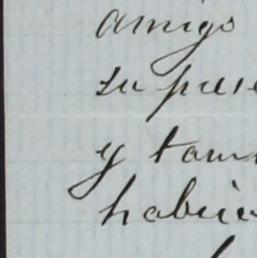 amigo
su prese
y tam
habia